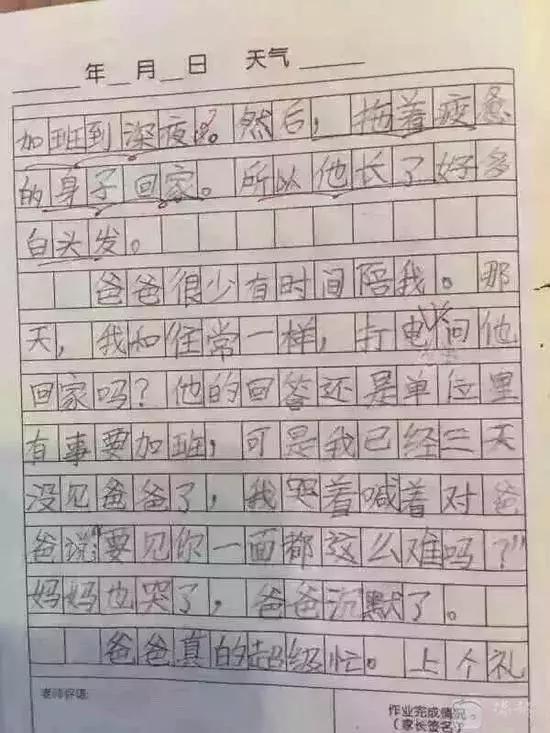 年 月 日 天气
加班到深夜。然后，拖着疲惫
的身子回家。所以他长了好多
白头发。
爸爸很少有时间陪我。那
天，我和往常一样，打电问他
回家吗？他的回答还是单位里
有事要加班，可是我已经三天
没见爸爸了，我哭着喊着对爸
爸说“要见你一面都这么难吗？”
妈妈也哭了，爸爸沉默了。
爸爸真的超级忙。上个礼
老师评语：
作业完成情况：
（家长签名）